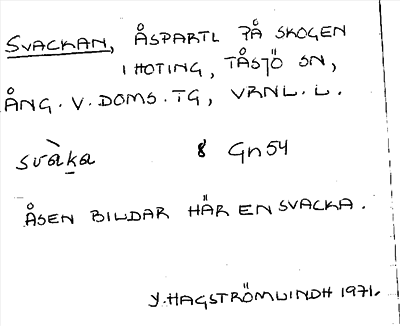 SVACKAN, ÅSPARTI PÅ SKOGEN
I HOTING, TÅSJÖ SN,
ÅNG. V. DOMS. TG, VRNL. L.
svàka 8 Gn54
ÅSEN BILDAR HÄR EN SVACKA.
Y. HAGSTRÖMLINDH 1971.